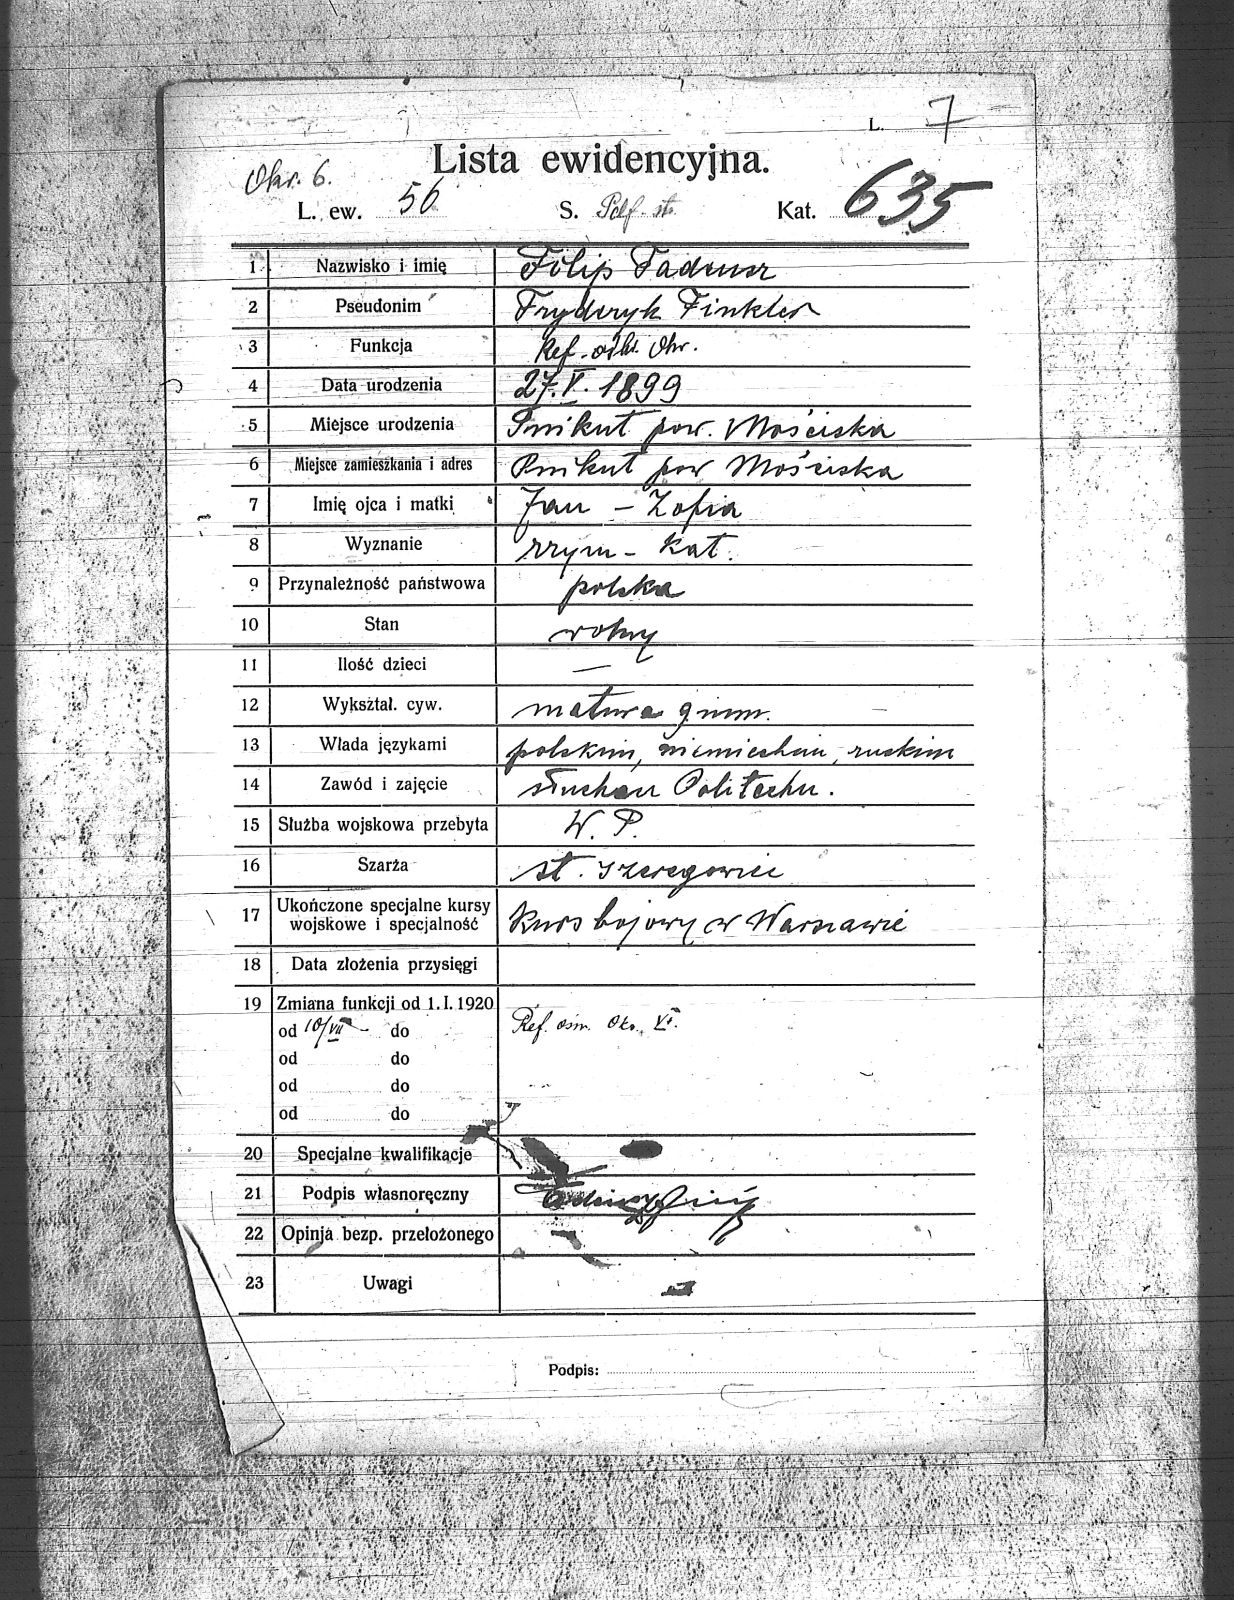 L. 7
Lista ewidencyjna.
Okr. 6.
L. ew. 56 S. Pdf. st. Kat. 635
1 Nazwisko i imię Filip Tadeusz
2 Pseudonim Fryderyk Finkler
3 Funkcja Ref. Okr.
4 Data urodzenia 27.V.1899
5 Miejsce urodzenia Pnikut pow. Mościska
6 Miejsce zamieszkania i adres Pnikut pow Mościska
7 Imię ojca i matki Jan – Zofia
8 Wyznanie rzym – Kat.
9 Przynależność państwowa polska
10 Stan wolny
11 Ilość dzieci —
12 Wykształ. cyw. matura gimn.
13 Włada językami polskim, niemieckim, ruskim
14 Zawód i zajęcie słuchacz Politechn.
15 Służba wojskowa przebyta W. P.
16 Szarża st. szeregowiec
17 Ukończone specjalne kursy
wojskowe i specjalność Kurs bojowy w Warszawie
18 Data złożenia przysięgi
19 Zmiana funkcji od 1. I. 1920
od 10/VII do Ref. ośw. Okr. VI.
od do
od do
od do
20 Specjalne kwalifikacje
21 Podpis własnoręczny
22 Opinja bezp. przełożonego
23 Uwagi
Podpis: